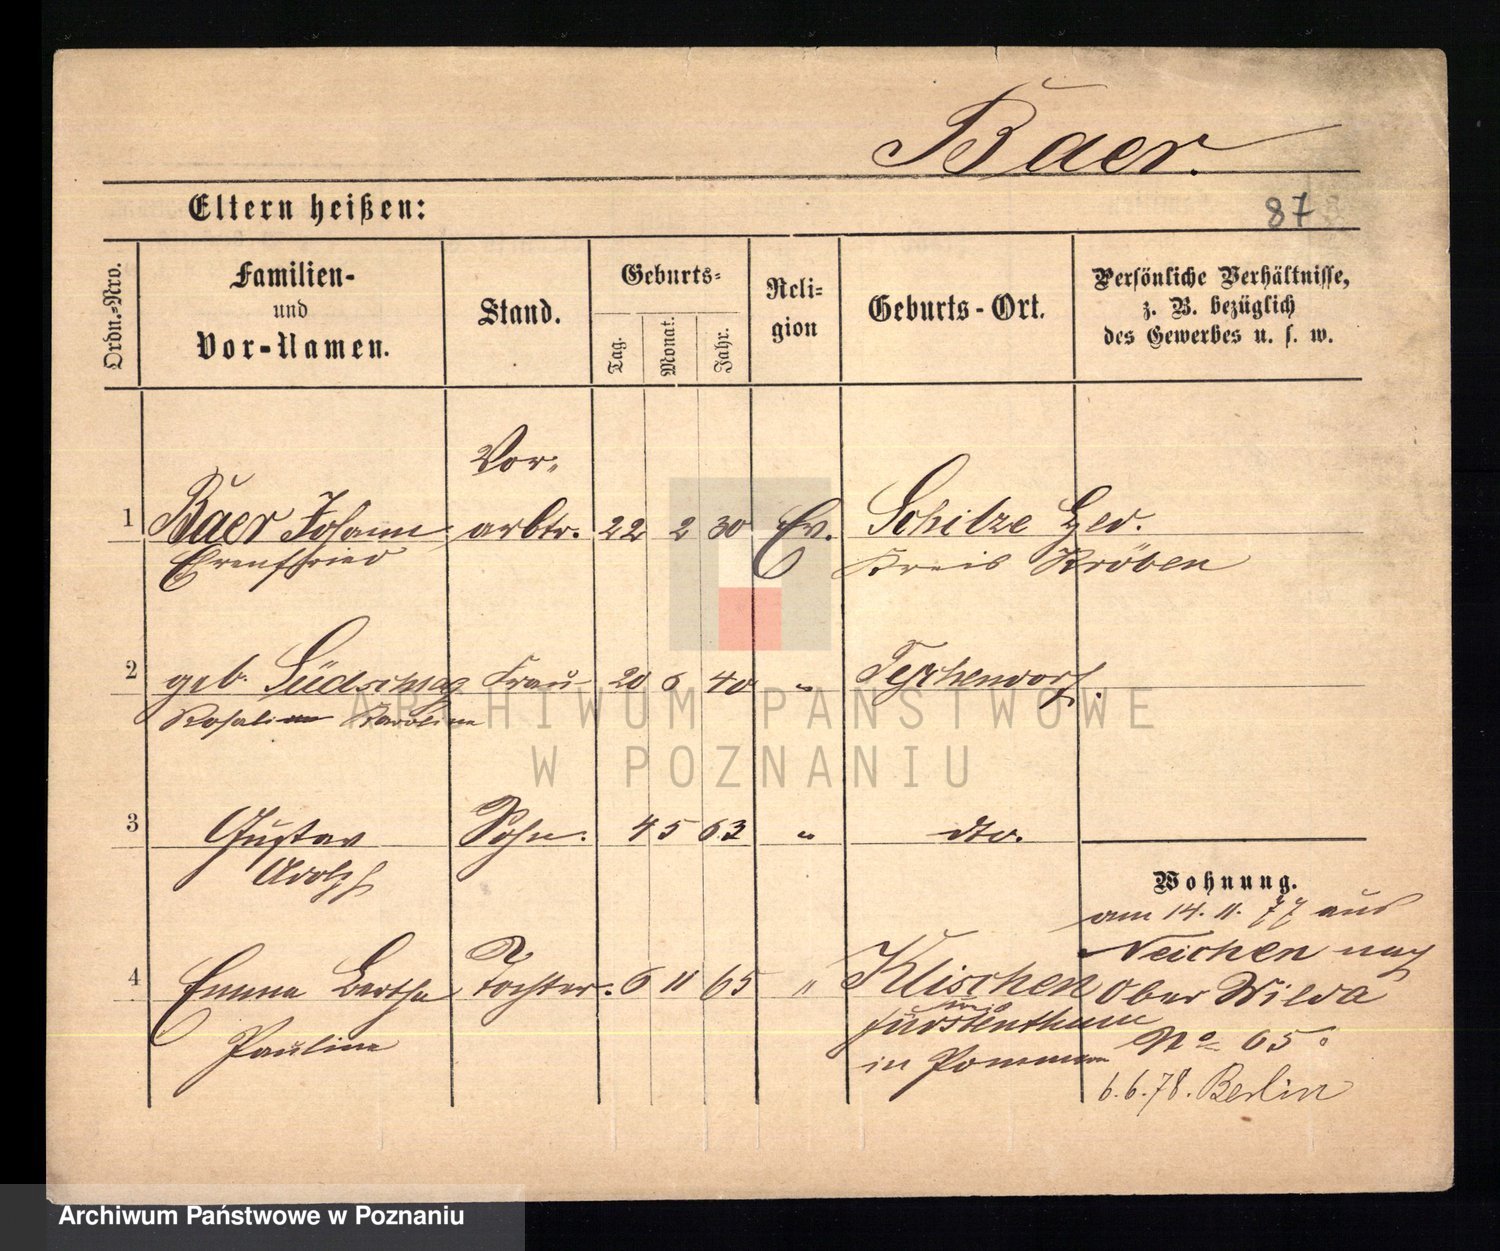 Baer.
Eltern heißen:
87
Ordn.-Nro.
Familien-
und
Vor-Namen.
Stand.
Geburts-
Tag.
Monat.
Jahr.
Reli-
gion
Geburts-Ort.
Persönliche Verhältnisse,
z. B. bezüglich
des Gewerbes u. s. w.
Vor-
1 Baer Johann arbtr. 22 2 30 Ev. Schitze
Ernfried Kreis Kröben
2 geb. Südschlag Frau 20 6 40 " Teschendorf.
Karoline
3 Gustav Sohn. 4 5 63 " dto.
Adolph
Wohnung.
am 14. 11. 77 aus
4 Emma Bertha Tochter. 6 11 65 " Klischen
Pauline
Fürstenthum
in Pommern
Neichen nach
Ober Wilda
No 65.
6.6.78. Berlin
ARCHIWUM PAŃSTWOWE
W POZNANIU
Archiwum Państwowe w Poznaniu